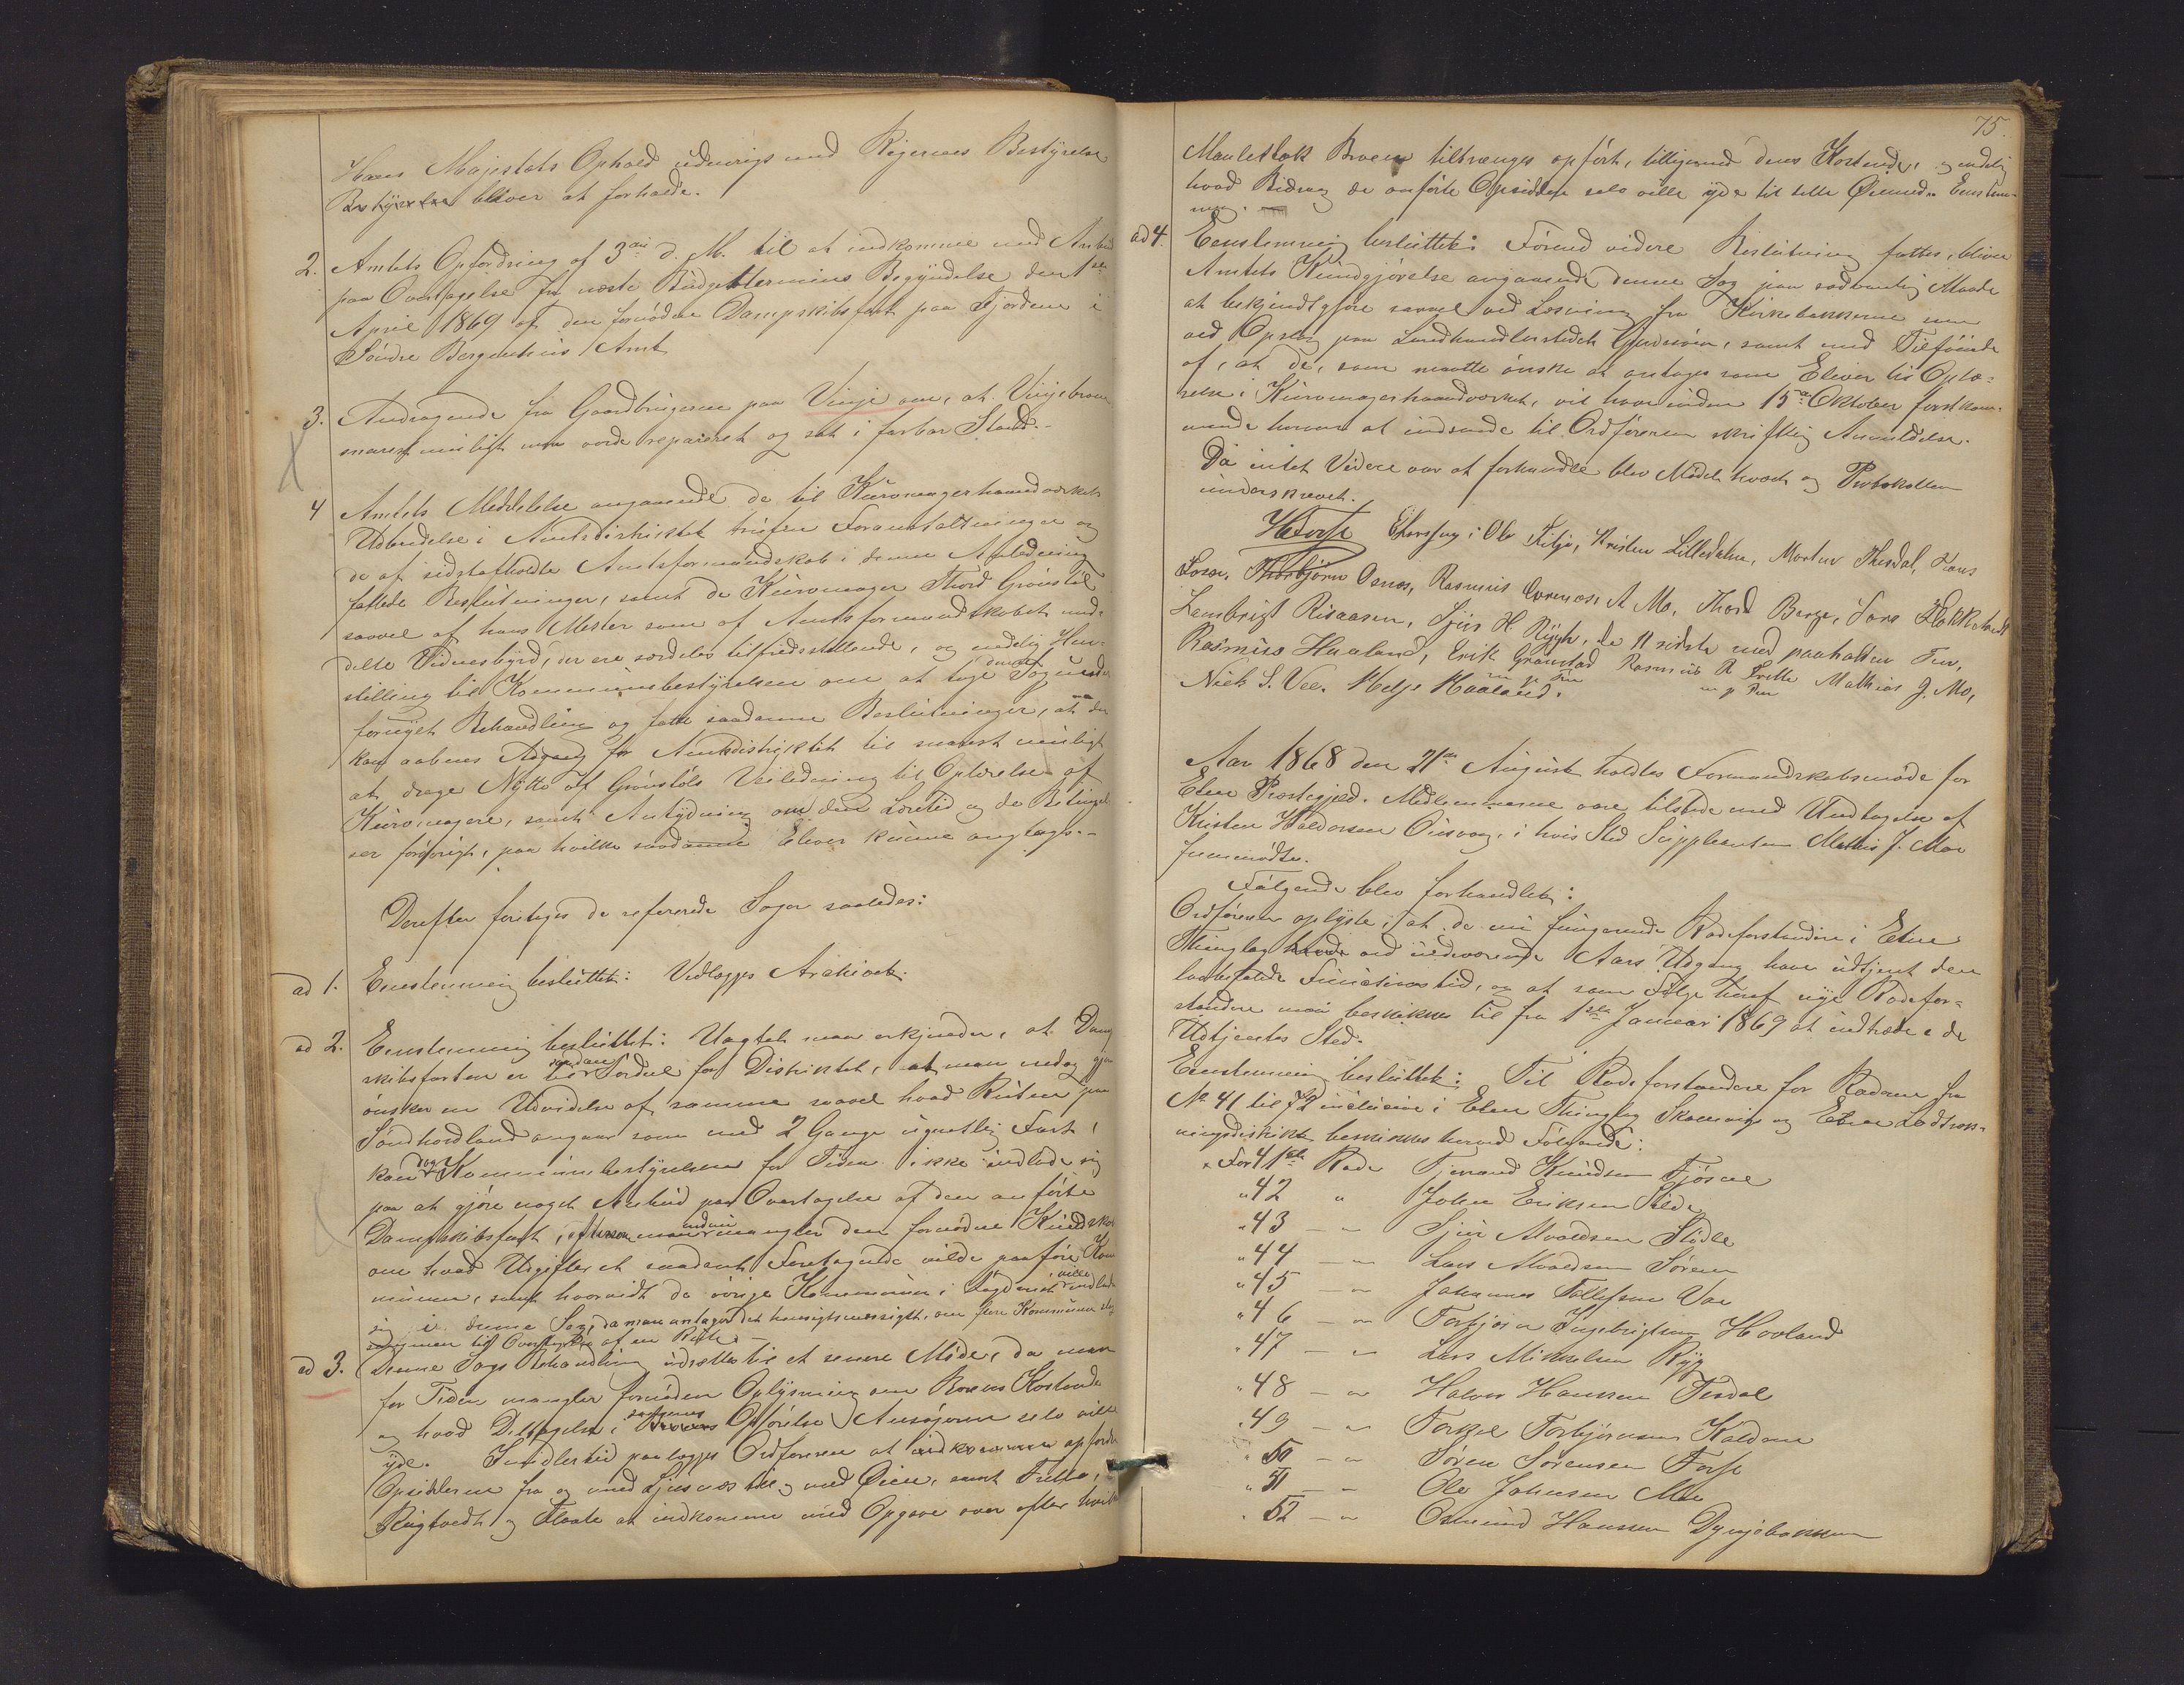 Hans Majestæts Ophold udenrigs med Rigernes Bestyrelse
Bestyrelse bliver at forholde.
2. Amtets Opfordring af 3die d. M. til at indkomme med Anbud
paa Overtagelse fra næste Budgettermins Begyndelse den 1ste
April 1869 af den fornødne Dampskibsfart paa Fjordene i
Søndre Bergenhus Amt
3. Andragende fra Gaardbrugerne paa Vinje om, at Vinjebroen
snarest muligt maa vorde repareret og sat i farbar Stand.-
4 Amtets Meddelelse angaaende de til Kurvmagerhaandværkets
Udbredelse i Amtsdistriktet trufne Foranstaltninger og
de af sidstafholdte Amtsformandskab i denne Anledning
fattede Beslutninger, samt de Kurvmager Thord Grønstøl
saavel af hans Mester som af Amtsformandskabet med-
delte Vidnesbyrd, der ere særdeles tilfredsstillende, og endelig Hen-
stilling til Kommunebestyrelsen om at tage denne Sag under
fornyet Behandling og fatte saadanne Beslutninger, at der
kan aabnes Adgang for Amtsdistriktet til snarest muligt
at drage Nytte af Grønstøls Veiledning til Oplærelse af
Kurvmagere, samt Antydning om den Læretid og de Betingel-
ser forøvrigt, paa hvilke saadanne Elever kunne antages.-
Derefter foretoges de refererede Sager saaledes:
ad 1. Eenstemmig besluttet: Vedlægges Archivet.
ad 2. Eenstemmig besluttet: Uagtet man erkjender, at Damp
skibsfarten er til saadan Fordeel for Distriktet, at man endog gjerne
ønsker en Udvidelse af samme saavel hvad Ruten paa
Søndhordland angaar som med 2 Gange ugentlig Fart,
kan dog Kommunebestyrelsen for Tiden ikke indlade sig
paa at gjøre noget Anbud paa Overtagelse af den anførte
Dampskibsfart, eftersom man endnu mangler den fornødne Kundskab
om hvad Udgifter et saadant Foretagende vilde paaføre Kom
munen, samt hvorvidt de øvrige Kommuner i Fogderiet ville indlade
sig i denne Sag, da man antager det hensigtsmæssigst, om flere Kommuner slog
sig sammen til Overtagelse af en Rute.-
ad 3. Denne Sags Behandling udsættes til et senere Møde, da man
for Tiden mangler fornøden Oplysning om Broens Kostende
og hvad Deltagelse i sammes Opførelse Ansøgerne selv ville
yde. Imidlertid paalægges Ordføreren at opfordre
Opsidderne fra og med Ljusnæs til og med Øien, samt Frette,
Rygtvedt og Flaate at indkomme med Opgave over efter hvilken
75.
Maalestok Broen tiltrænges opført, tilligemed dens Kostende, og endelig
hvad Bidrag de anførte Opsiddere selv ville yde til dette Øiemed. Eenstem-
mig.-
ad 4. Eenstemmig besluttet: Førend videre Beslutning fattes, bliver
Amtets Kundgjørelse angaaende denne Sag paa sædvanlig Maade
at bekjendtgjøre saavel ved Læsning fra Kirkebakkerne som
ved Opslag paa Landhandlerstedet Gjerdesvien, samt med Tilføiende
af, at de, som maatte ønske at antages som Elever til Oplæ-
relse i Kurvmagerhaandværket, vil have inden 15de Oktober førstkom-
mende herom at indsende til Ordføreren skriftlig Anmeldelse.
Da intet Videre var at forhandle blev Mødet hævet og Protokollen
underskrevet.
Ole Kilje, Kristen Lilledalen, Morten Thesdal, Hans
Thorbjørn Osnes, Rasmus A Mo, Thord Berge, Lars
Lambrigt Risaasen, Sjur H Rygh, de 11 sidste med paaholden Pen,
Rasmus Haaland, Erik Grønstad Rasmus R Frette Mathias J. Mo,
m p Pen m p Pen
Niels S. Vee. Helje Haaland.
Aar 1868 den 21de August holdtes Formandskabsmøde for
Etne Præstegjeld. Medlemmerne vare tilstede med Undtagelse af
Kristen Haldorsen Øiesvog, i hvis Sted Suppleanten Mathis J. Moe
fremmødte.
Følgende blev forhandlet:
Ordføreren oplyste, at de nu fungerende Rodeforstandere i Etne
Thinglag havde ved indeværende Aars Udgang have udtjent den
lovbefalede Functionstid, og at som Følge heraf nye Rodefor-
standere maa beskikkes til fra 1ste Januar 1869 at indtræde i de
Udtjentes Sted.
Eenstemmig besluttet: Til Rodeforstandere for Roderne fra
No 41 til 72 inclusive i Etne Thinglag Skaanevigs og Etne Lodtræk-
ningsdistrikt beskikkes herved Følgende:
x For 41de Rode Tjerand Knudsen Fjøsne
" 42 " Johan Eriksen Silde
" 43 - " Sjur Alvaldsen Stødle
" 44 - " Lars Alvaldsen Sørem
" 45 - " Johannes Tollefsen Vae
" 46 - " Torbjørn Ingebrigtsen Hovland
" 47 - " Lars Mikkelsen Ryg
" 48 - " Halvor Hansen Tesdal
" 49 - " Torkel Torbjørnsen Kaldem
" 50 - " Søren Sørensen Torse
" 51 - " Ole Johnsen Moe
" 52 - " Osmund Hansen Dynjebakken